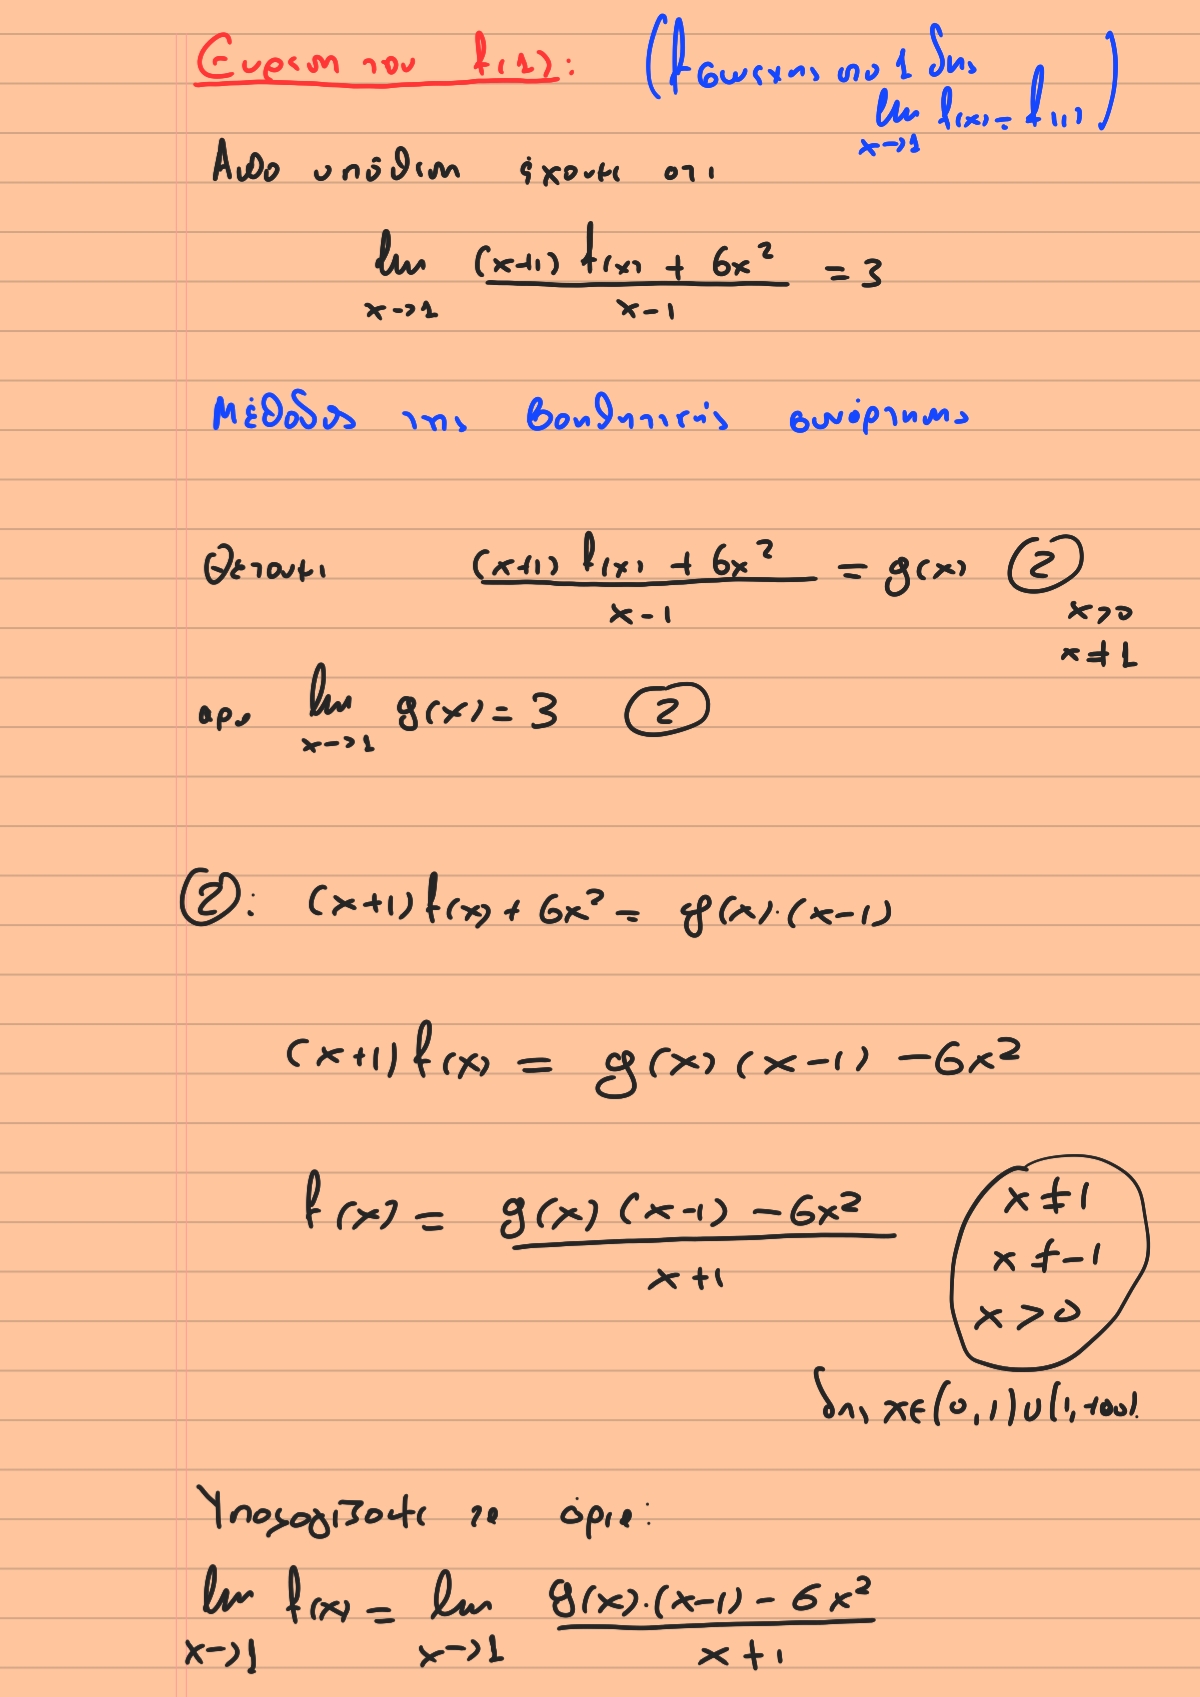 Ευρεση του f(1): (f συνεχης στο 1 δηλ
lim x→1 f(x) = f(1))
Απο υπόθεση έχουμε οτι
lim x→1 ((x+1) f(x) + 6x²)/(x-1) = 3
Μέθοδος της βοηθητικής συνάρτησης
Θετουμε ((x+1) f(x) + 6x²)/(x-1) = g(x) ②
x>0
x≠1
αρα lim x→1 g(x) = 3 ②
②: (x+1) f(x) + 6x² = g(x)·(x-1)
(x+1) f(x) = g(x) (x-1) - 6x²
f(x) = (g(x) (x-1) - 6x²)/(x+1)
x≠1
x≠-1
x>0
δηλ x∈(0,1)∪(1,+∞).
Υπολογίζουμε το όριο:
lim x→1 f(x) = lim x→1 (g(x)·(x-1) - 6x²)/(x+1)